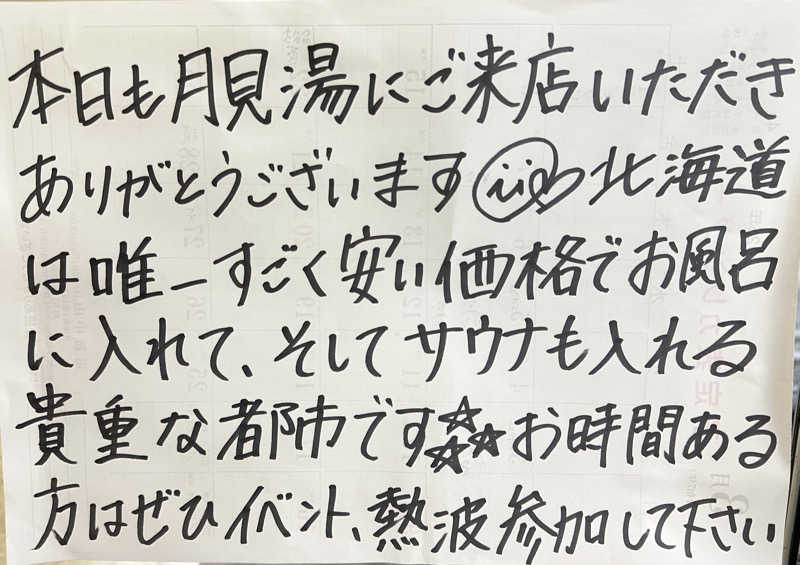 本日も月見湯にご来店いただき
ありがとうございます 北海道
は唯一すごく安い価格でお風呂
に入れて、そしてサウナも入れる
貴重な都市です☆☆☆お時間ある
方はぜひイベント、熱波参加して下さい